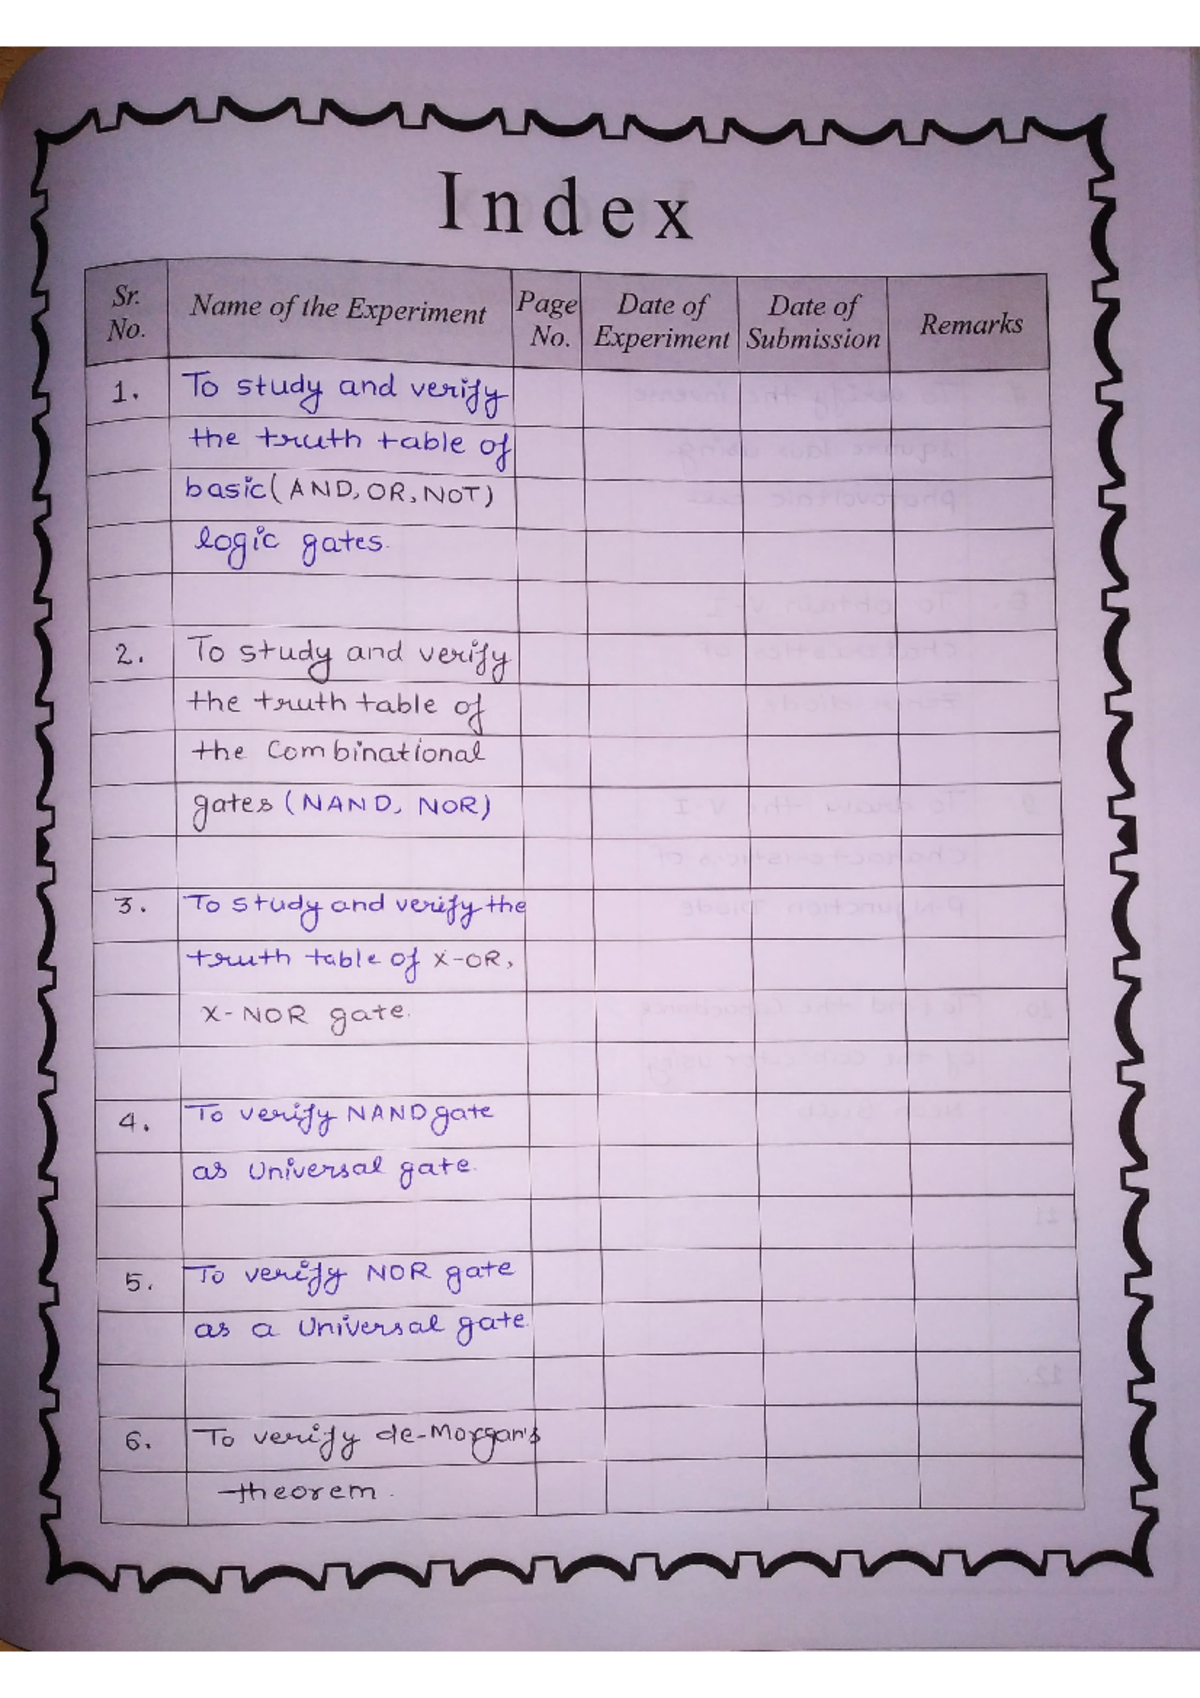 Index
Sr. No. Name of the Experiment Page No. Date of Experiment Date of Submission Remarks
1. To study and verify
the truth table of
basic (AND, OR, NOT)
logic gates.
2. To study and verify
the truth table of
the Combinational
gates (NAND, NOR)
3. To study and verify the
truth table of X-OR,
X-NOR gate.
4. To verify NAND gate
as Universal gate.
5. To verify NOR gate
as a Universal gate.
6. To verify de-Morgan's
theorem.